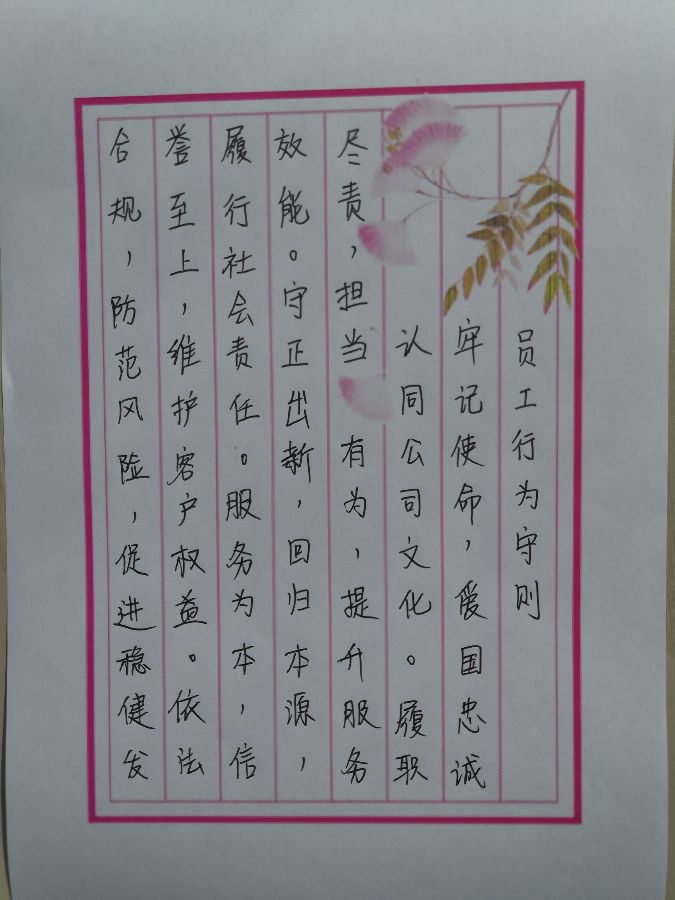 员工行为守则
牢记使命，爱国忠诚
认同公司文化。履职
尽责，担当有为，提升服务
效能。守正出新，回归本源，
履行社会责任。服务为本，信
誉至上，维护客户权益。依法
合规，防范风险，促进稳健发